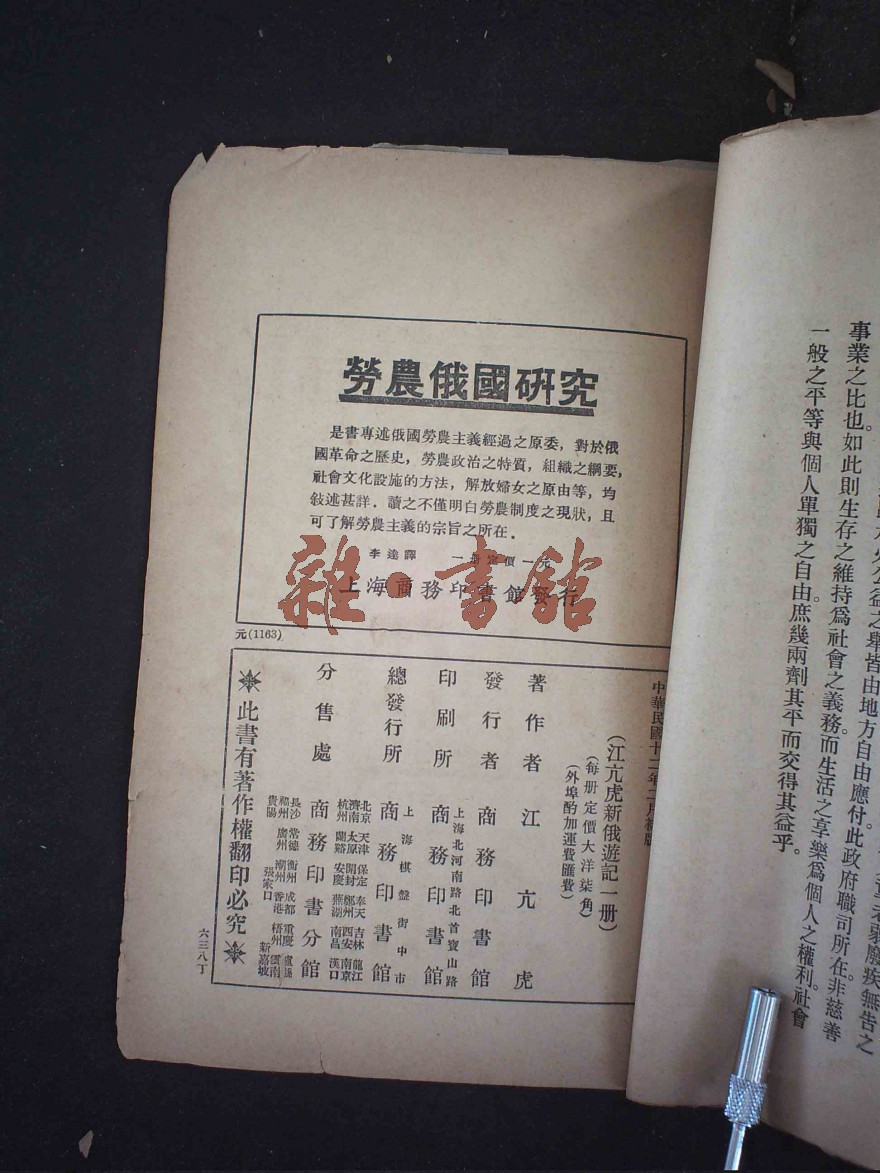 事業之比也。如此則生存之維持爲社會之義務。而生活之享樂爲個人之權利。社會
一般之平等與個人單獨之自由。庶幾兩劑其平而交得其益乎。
勞農俄國研究
是書專述俄國勞農主義經過之原委，對於俄
國革命之歷史，勞農政治之特質，組織之綱要，
社會文化設施的方法，解放婦女之原由等，均
敍述甚詳．讀之不僅明白勞農制度之現狀，且
可了解勞農主義的宗旨之所在．
李達譯 一册定價一元
上海商務印書館發行
雜·書館
元(1163)
中華民國十二年二月初版
(江亢虎新俄遊記一册)
(每册定價大洋柒角)
(外埠酌加運費匯費)
著作者 江亢虎
發行者 商務印書館
上海北河南路北首寶山路
印刷所 商務印書館
上海棋盤街中市
總發行所 商務印書館
北京 天津 保定 奉天 吉林 龍江
濟南 太原 開封 鄭州 西安 南京
杭州 蘭谿 安慶 蕪湖 南昌 漢口
分售處 商務印書分館
長沙 常德 衡州 成都 重慶
福州 廣州 潮州 香港 梧州 雲南
貴陽 張家口 新嘉坡
此書有著作權翻印必究
六三八丁